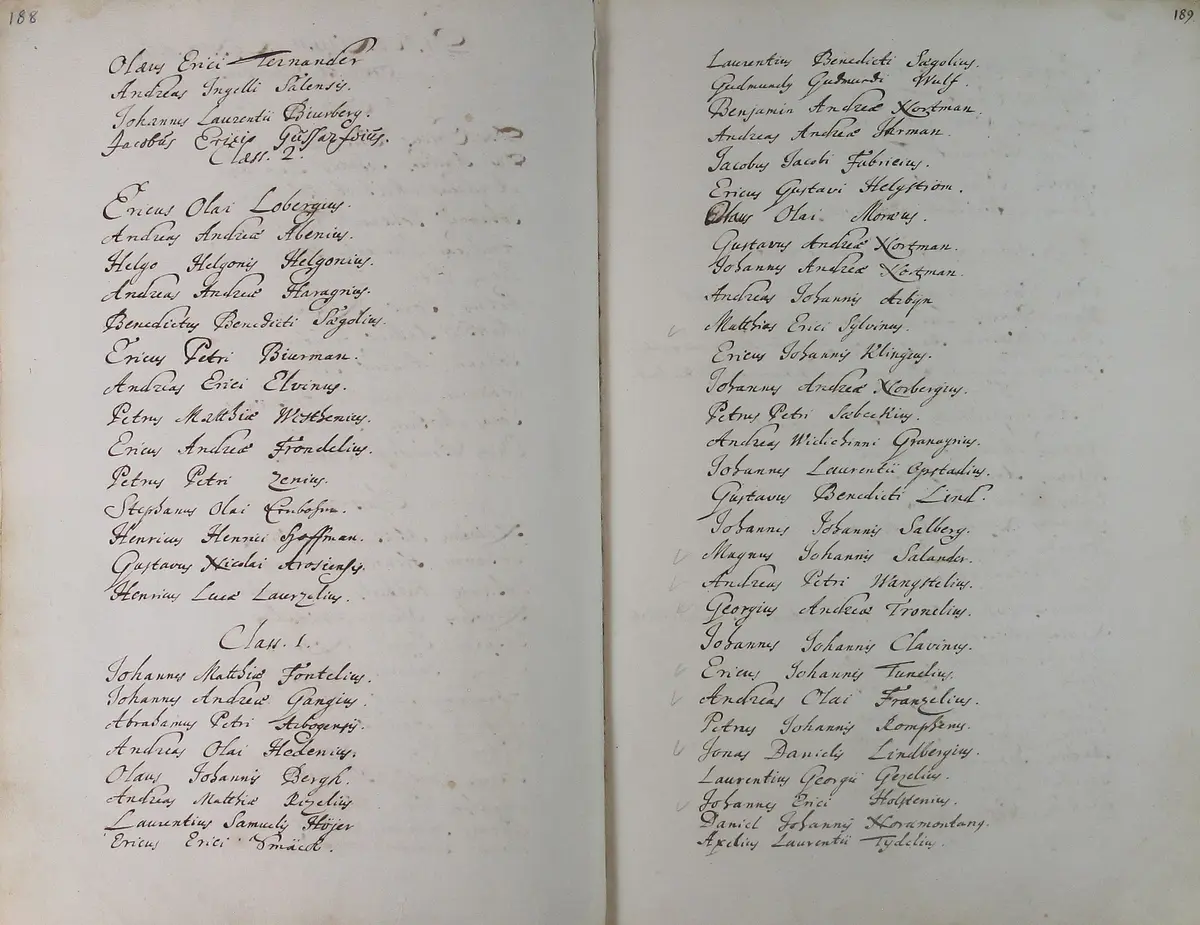 188
Olaus Erici Ternander
Andreas Ingelli Salensis.
Johannes Laurentii Biurberg.
Jacobus Erici
Class. 2.
Ericus Olai Lobergius.
Andreas Andreæ Abenius.
Helgo Helgonis Helgonius.
Andreas Andreæ Haragrius.
Benedictus Benedicti Sægolius.
Ericus Petri Biurman.
Andreas Erici Elvinus.
Petrus Matthiæ Westhenius.
Ericus Andreæ Frondelius.
Petrus Petri Zenius.
Stephanus Olai
Henricus Henrici Hoffman.
Gustavus Nicolai Arosiensis.
Henricus Lucæ Laurzelius.
Class. 1.
Johannes Matthiæ Fontelius.
Johannes Andreæ Gangius.
Abrahamus Petri Arbogensis.
Andreas Olai Hodenius.
Olaus Johannis Bergh.
Andreas Matthiæ Rizelius
Laurentius Samuelis Höjer
Ericus Erici Smäck.
189
Laurentius Benedicti Sægolius.
Gudmundus Gudmundi Wulf.
Benjamin Andreæ Nortman.
Andreas Andreæ Harman.
Jacobus Jacobi Fabricius.
Ericus Gustavi Helgström.
Olaus Olai Moræus.
Gustavus Andreæ Nortman.
Johannes Andreæ Nortman.
Andreas Johannis Arbyn
Matthias Erici Sylvinus.
Ericus Johannis Klingius.
Johannes Andreæ Norbergius.
Petrus Petri Sæbeckius.
Andreas Widichinni Granagrius.
Johannes Laurentii Opstadius.
Gustavus Benedicti Lind.
Johannes Johannis Salberg.
Magnus Johannis Salander.
Andreas Petri Wangstelius.
Georgius Andreæ Tronelius.
Johannes Johannis Clavinus.
Ericus Johannis Tunelius.
Andreas Olai Franzelius.
Petrus Johannis Romphenus.
Jonas Danielis Lindbergius.
Laurentius Georgii Gezelius.
Johannes Erici Holstenius.
Daniel Johannis Noramontanus.
Axelius Laurentii Tydelius.